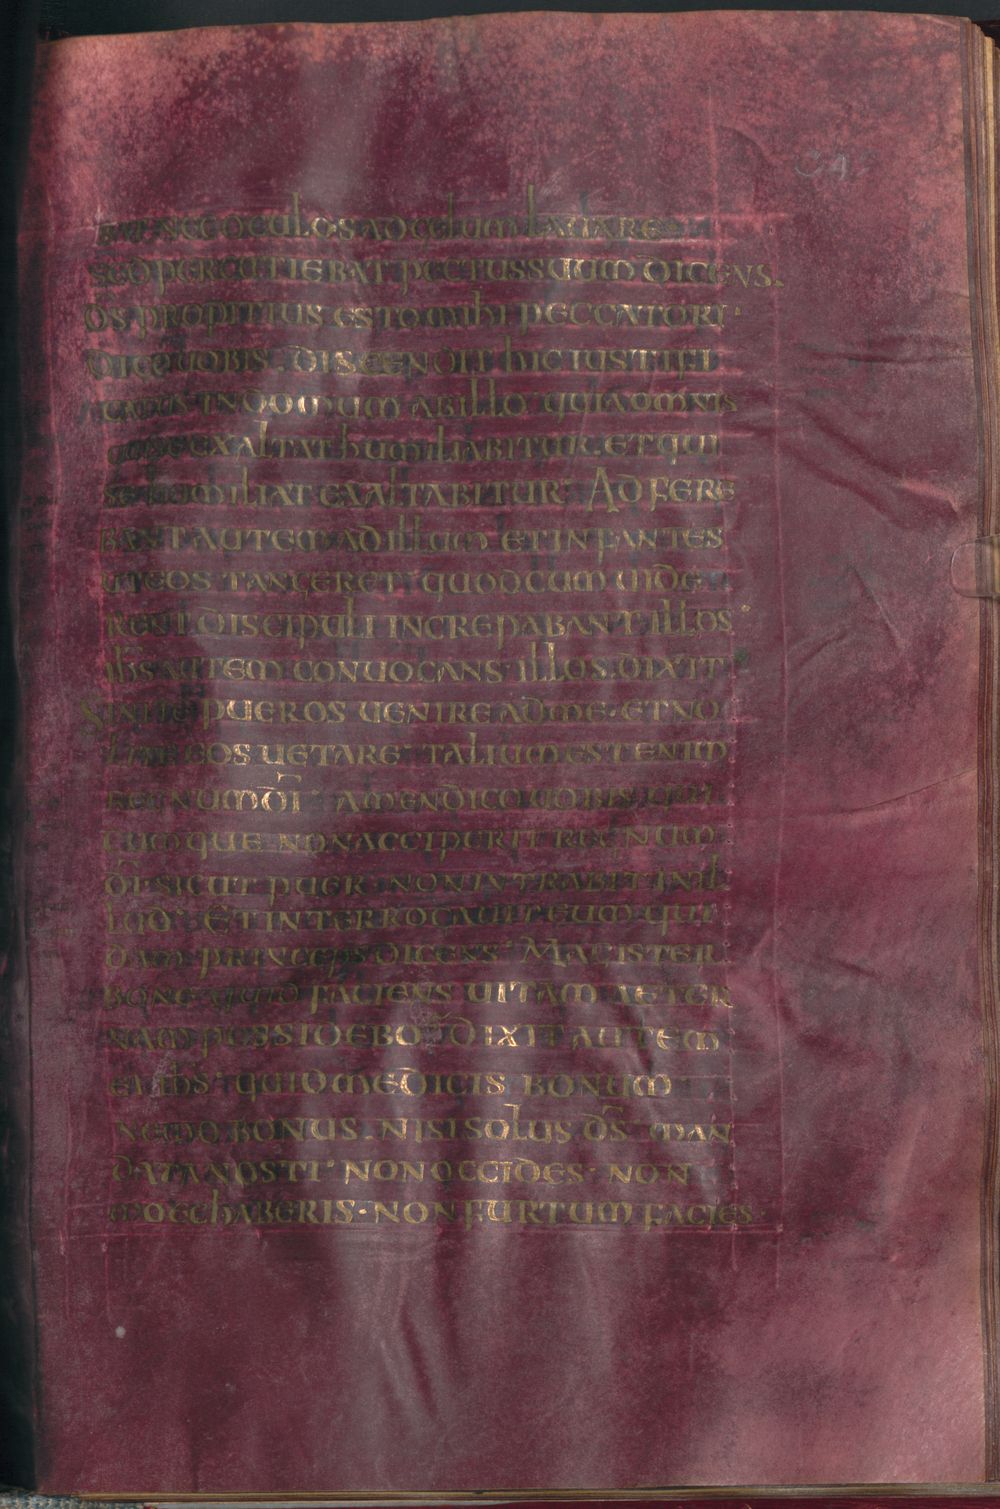 BAT NEC OCULOS AD CELUM LEUARE
SED PERCUTIEBAT PECTUS SUUM DICENS.
D̄S PROPITIUS ESTO MIHI PECCATORI·
DICO UOBIS. DISCENDIT HIC IUSTIFI
IN DOMUM AB ILLO QUIA OMNIS
QUI SE EXALTAT HUMILIABITUR. ET QUI
SE HUMILIAT EXALTABITUR· AD FERE
BANT AUTEM AD ILLUM ET INFANTES
UT EOS TANGERET· QUOD CUM UIDE
RENT DISCIPULI INCREPABANT ILLOS·
IH̄S AUTEM CONUOCANS ILLOS. DIXIT·
SINITE PUEROS UENIRE AD ME· ET NO
LITE EOS UETARE· TALIUM EST ENIM
REGNUM D̄I· AMEN DICO UOBIS QUI
CUMQUE NON ACCIPERIT REGNUM
D̄I SICUT PUER· NON INTRABIT IN IL
LUD· ET INTERROGAUIT EUM QUI
DAM PRINCEPS DICENS· MAGISTER
BONE QUID FACIENS UITAM AETER
NAM POSSIDEBO· DIXIT AUTEM
EI IH̄S· QUID ME DICIS BONUM
NEMO BONUS. NISI SOLUS D̄S· MAN
DATA NOSTI· NON OCCIDES· NON
MOECHABERIS· NON FURTUM FACIES·